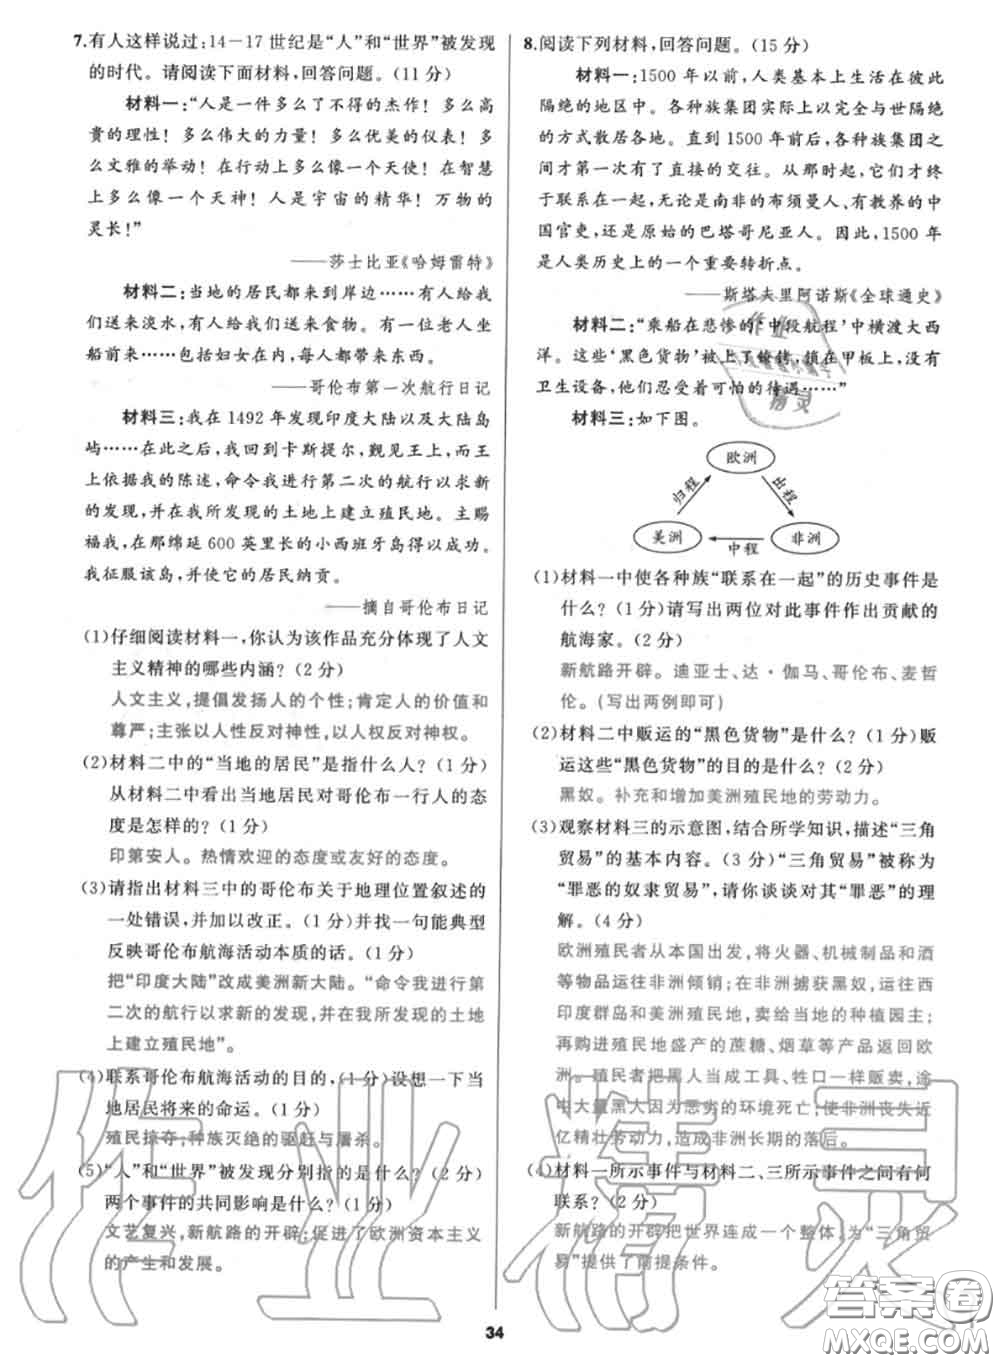 7.有人这样说过:14－17世纪是“人”和“世界”被发现
的时代。请阅读下面材料,回答问题。(11分)
材料一:“人是一件多么了不得的杰作！多么高
贵的理性！多么伟大的力量！多么优美的仪表！
多么文雅的举动！在行动上多么像一个天使！在智慧
上多么像一个天神！人是宇宙的精华！万物的
灵长!”
——莎士比亚《哈姆雷特》
材料二:当地的居民都来到岸边……有人给我
们送来淡水,有人给我们送来食物。有一位老人坐
船前来……包括妇女在内,每人都带来东西。
——哥伦布第一次航行日记
材料三:我在1492年发现印度大陆以及大陆岛
屿……在此之后,我回到卡斯提尔,觐见女王。女王
上依据我的陈述,命令我进行第二次的航行以求新
的发现,并在我所发现的土地上建立殖民地。主赐
福我,在那绵延600英里长的小西班牙岛得以成功。
我征服该岛,并令它的居民纳贡。
——摘自哥伦布日记
(1)仔细阅读材料一,你认为该作品充分体现了人文
主义精神的哪些内涵？(2分)
人文主义,提倡发扬人的个性;肯定人的价值和
尊严;主张以人性反对神性,以人权反对神权。
(2)材料二中的“当地的居民”是指什么人？(1分)
从材料二中看出当地居民对哥伦布一行人的态
度是怎样的？(1分)
印第安人。热情欢迎的态度或友好的态度。
(3)请指出材料三中的哥伦布关于地理位置叙述的
一处错误,并加以改正。(1分)并找一句能典型
反映哥伦布航海活动本质的话。(1分)
把“印度大陆”改成美洲新大陆。“命令我进行第
二次的航行以求新的发现,并在我所发现的土地
上建立殖民地”。
(4)联系哥伦布航海活动的目的,(1分)设想一下当
地居民将来的命运。(1分)
殖民掠夺,种族灭绝的驱赶与屠杀。
(5)“人”和“世界”被发现分别指的是什么？(2分)
两个事件的共同影响是什么？(1分)
文艺复兴,新航路的开辟;促进了欧洲资本主义
的产生和发展。
8.阅读下列材料,回答问题。(15分)
材料一:1500年以前,人类基本上生活在彼此
隔绝的地区中。各种族集团实际上以完全与世隔绝
的方式散居各地。直到1500年前后,各种族集团之
间才第一次有了直接的交往。从那时起,它们才终
于联系在一起,无论是南非的布须曼人、有教养的中
国官吏,还是原始的巴塔哥尼亚人。因此,1500年
是人类历史上的一个重要转折点。
——斯塔夫里阿诺斯《全球通史》
材料二:“乘船在悲惨的‘中段航程’中横渡大西
洋。这些‘黑色货物’被上了镣铐,锁在甲板上,没有
卫生设备,他们忍受着可怕的待遇……”
材料三:如下图。
欧洲
归程 出程
美洲 中程 非洲
(1)材料一中使各种族“联系在一起”的历史事件是
什么？(1分)请写出两位对此事件作出贡献的
航海家。(2分)
新航路开辟。迪亚士、达·伽马、哥伦布、麦哲
伦。(写出两例即可)
(2)材料二中贩运的“黑色货物”是什么？(1分)贩
运这些“黑色货物”的目的是什么？(2分)
黑奴。补充和增加美洲殖民地的劳动力。
(3)观察材料三的示意图,结合所学知识,描述“三角
贸易”的基本内容。(3分)“三角贸易”被称为
“罪恶的奴隶贸易”,请你谈谈对其“罪恶”的理
解。(4分)
欧洲殖民者从本国出发,将火器、机械制品和酒
等物品运往非洲倾销;在非洲掳获黑奴,运往西
印度群岛和美洲殖民地,卖给当地的种植园主;
再购买殖民地盛产的蔗糖、烟草等产品返回欧
洲。殖民者把黑人当成工具、牲口一样贩卖,途
中大量黑人因为恶劣的环境死亡;使非洲丧失近
亿精壮劳动力,造成非洲长期的落后。
(4)材料一所示事件与材料二、三所示事件之间有何
联系？(2分)
新航路的开辟把世界连成一个整体,为“三角贸
易”提供了前提条件。
34
作业精灵
答案圈
MXQE.COM